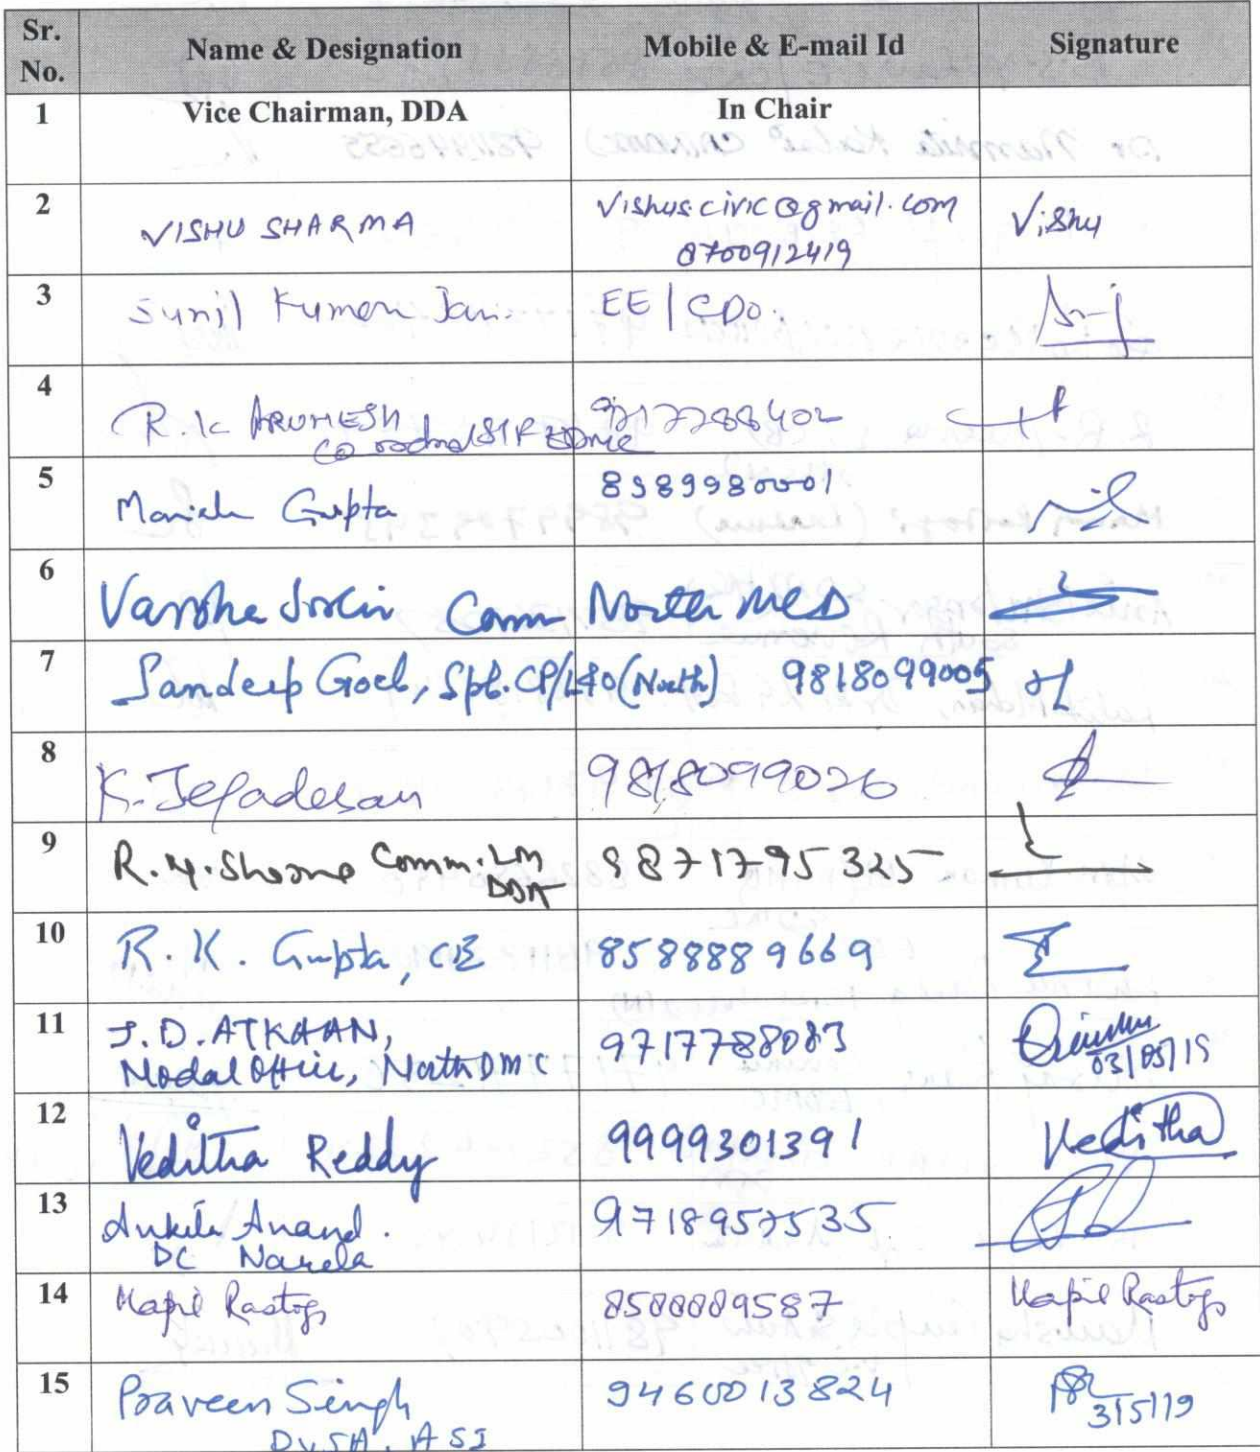 Sr. No. Name & Designation Mobile & E-mail Id Signature
1 Vice Chairman, DDA In Chair
2 VISHU SHARMA Vishus.civic@gmail.com Vishu
8700912419
3 Sunil Kumar Jain. EE/CDO.
4 R.K ARUMESH 9717788402
5 Manish Gupta 8989980001
6 Varsha Joshi Comm North MCD
7 Sandeep Goel, Spl. CP/L&O (North) 9818099005
8 K. Jegadesan 9818099026
9 R.M. Sharma Comm. LM 8871795325
DDA
10 R. K. Gupta, CE 8588889669
11 J.D. ATKAAN, 9717788083
Nodal Officer, North DMC 03/05/19
12 Veditha Reddy 9999301391 Veditha
13 Ankita Anand. 9718957535
DC Narela
14 Kapil Rastogi 8588889587 Kapil Rastogi
15 Praveen Singh 9460013824
Dy.SA, ASI 3/5/19